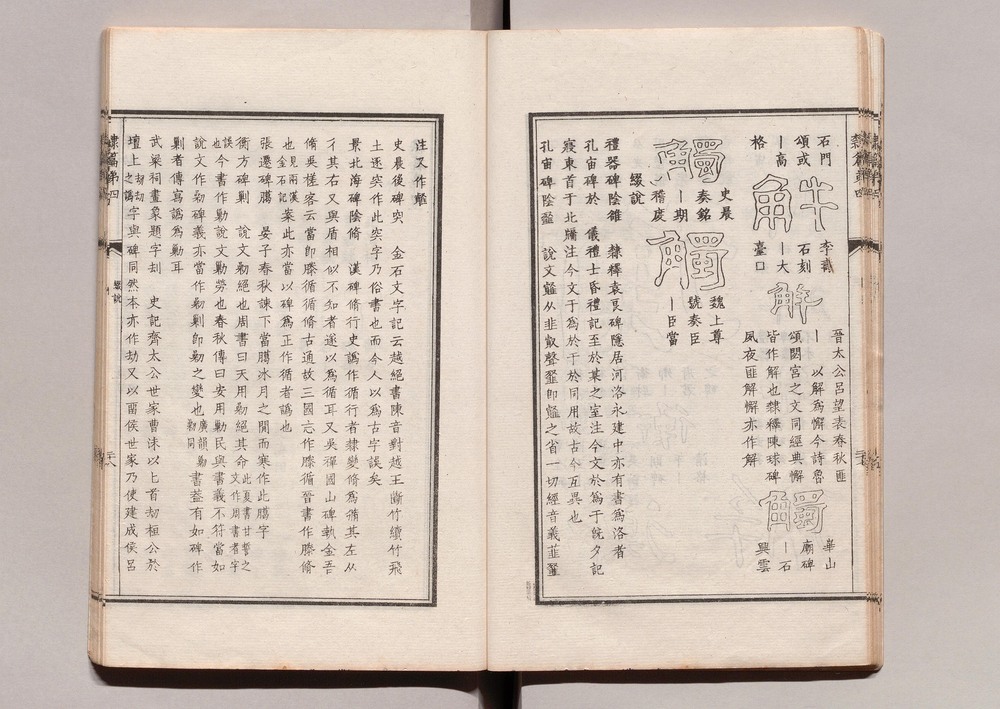 石門
頌或
｜高
格
解
李翕
石刻
｜大
臺口
解
晉太公呂望表春秋匪
｜　以解爲懈今詩魯
頌閟宮之文同經典懈
皆作解也隸釋陳球碑
夙夜匪解懈亦作解
觸
華山
廟碑
｜石
興雲
觸
史晨
奏銘
｜期
稽度
觸
魏上尊
號奏臣
｜臣當
綴說
禮器碑陰雒　隸釋袁良碑隱居河洛永建中亦有書爲洛者
孔宙碑於　儀禮士昏禮記至於某之室注今文於爲于旣夕記
寢東首于北牖注今文于爲於于於同用故古今互異也
孔宙碑陰韰　說文韰从韭㕡聲䪥即韰之省一切經音義韮䪥
注又作韰
史晨後碑突　金石文字記云越絕書陳音對越王斷竹續竹飛
土逐突作此突字乃俗書也而今人以爲古字誤矣
景北海碑陰脩　漢碑脩行史譌作循行者隸變脩爲㣊其左从
彳其右又與盾相似不知者遂以爲循耳又吳禪國山碑執金吾
脩吳槎客云當即滕循循脩古通故三國志作滕循晉書作滕脩
也見兩漢金石記案此亦當以碑爲正作循者譌也
張遷碑臈　晏子春秋諫下當臈冰月之閒而寒作此臈字
衡方碑剿　說文勦絕也周書曰天用勦絕其命此夏書甘誓之文作周書者字
誤也今書作勦說文勦勞也春秋傳曰安用勦民與書義不符當如
說文作剿碑義亦當作剿剿即勦之變也廣韻勦剿同書蓋有如碑作
剿者傳寫譌爲勦耳
武梁祠畫象題字刦　史記齊太公世家曹沬以匕首刦桓公於
壇上刦劫之譌字與碑同然本亦作劫又以留侯世家乃使建成侯呂
隸篇弟四
綴說
卄八